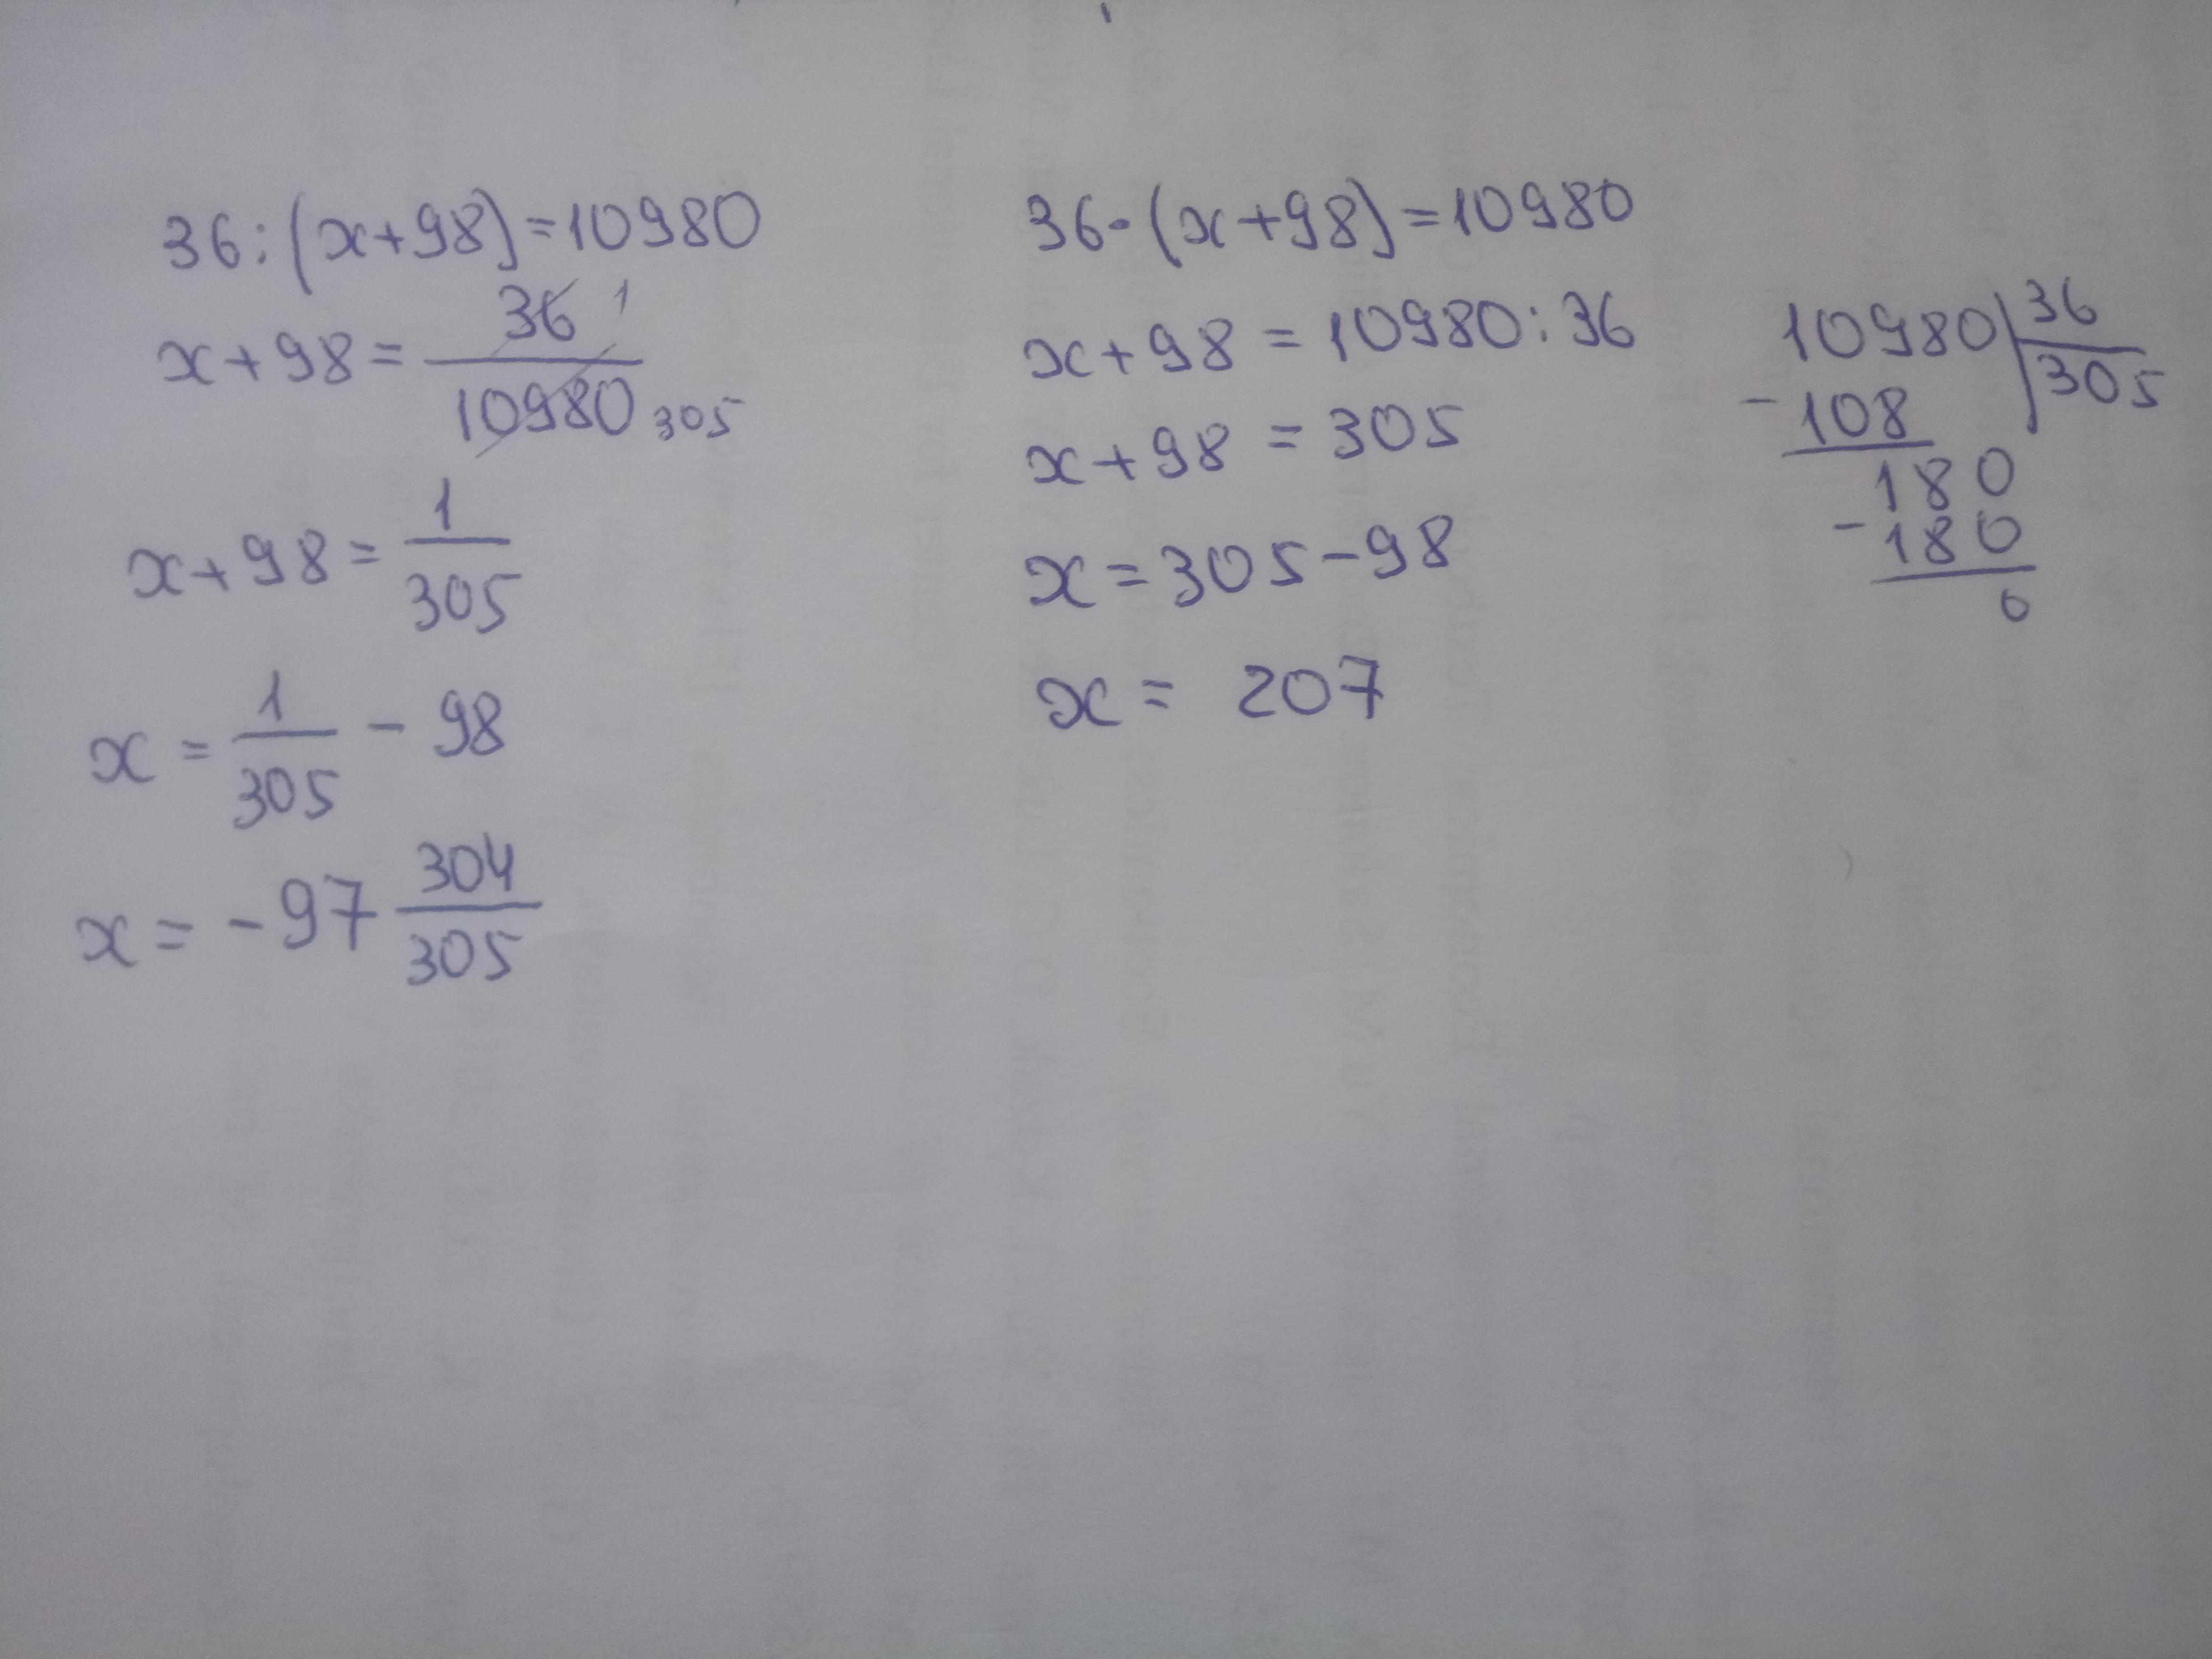 36:(x+98)=10980
x+98=36 1/10980 305
x+98=1/305
x=1/305-98
x=-97 304/305
36·(x+98)=10980
x+98=10980:36
x+98=305
x=305-98
x=207
10980|36
-108 305
180
-180
0